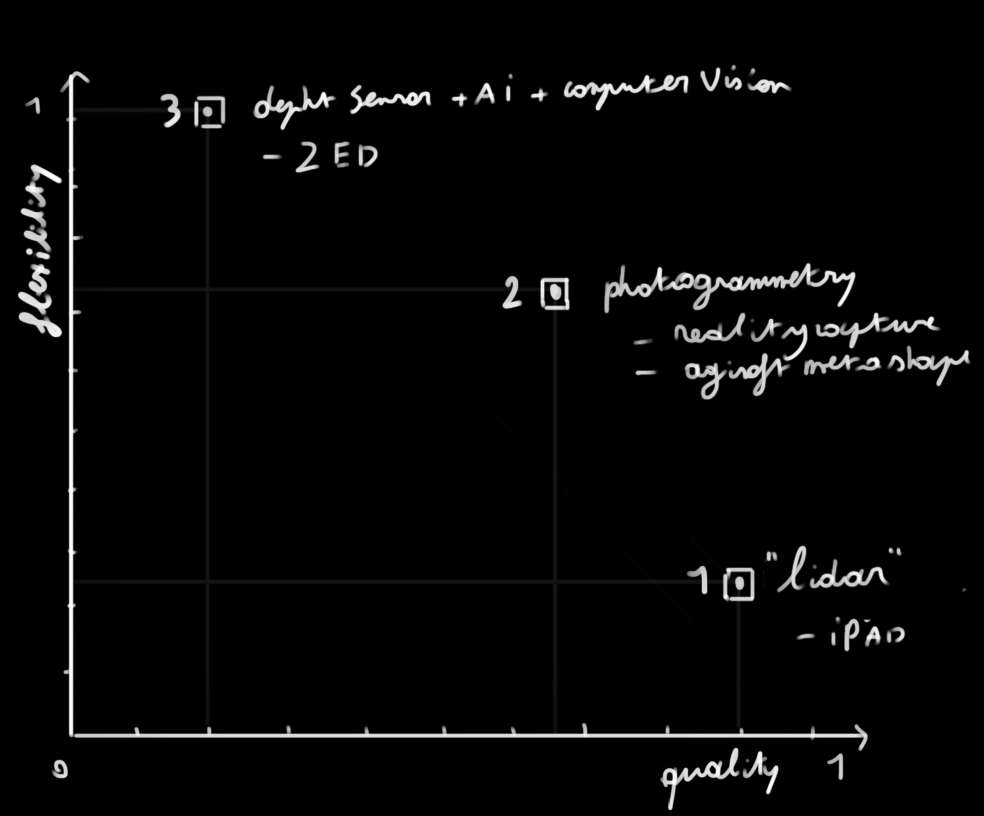 1
3 depht sensor + Ai + computer Vision
- ZED
flexility
2 photogrammetry
- reality capture
- agisoft metashape
1 "lidar"
- iPAD
0
quality 1